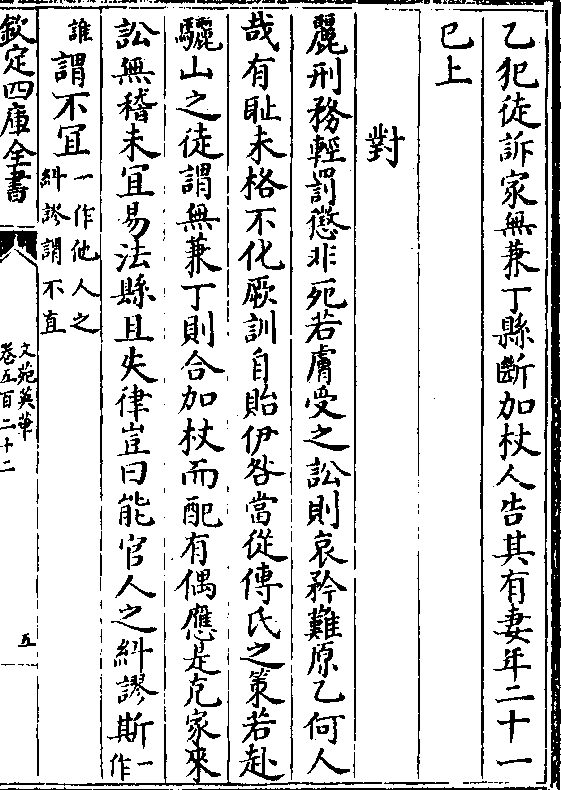 乙犯徒訴家無兼丁縣斷加杖人告其有妻年二十一
已上
對
麗刑務輕罰懲非死若膚受之訟則哀矜難原乙何人
哉有耻未格不化厥訓自貽伊咎當從傅氏之策若赴
驪山之徒謂無兼丁則合加杖而配有偶應是克家來
訟無稽未宜易法縣且失律豈曰能官人之糾謬斯一作
誰謂不宜一作他人之糾謬謂不直
欽定四庫全書
文苑英華
卷五百二十二
五